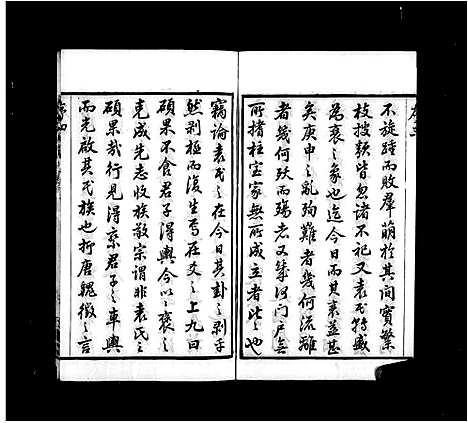 不旋踵而敗群萌於其間實繁
枝搜歎皆忽諸不祀又袁氏特盛
為衰之象也迄今日而其衰益甚
矣庚申之亂殉難者幾何流離
者幾何殀而殤者又幾何門戶無
所搘柱室家無所成立者此之也
竊論袁氏之在今日其卦之剝乎
然剝極而復生焉在爻之上九曰
碩果不食君子得輿今以襃之
克成先志收族敬宗謂非袁氏之
碩果哉行見得乘君子之車輿
而光啟其氏族也抑唐魏徵之言